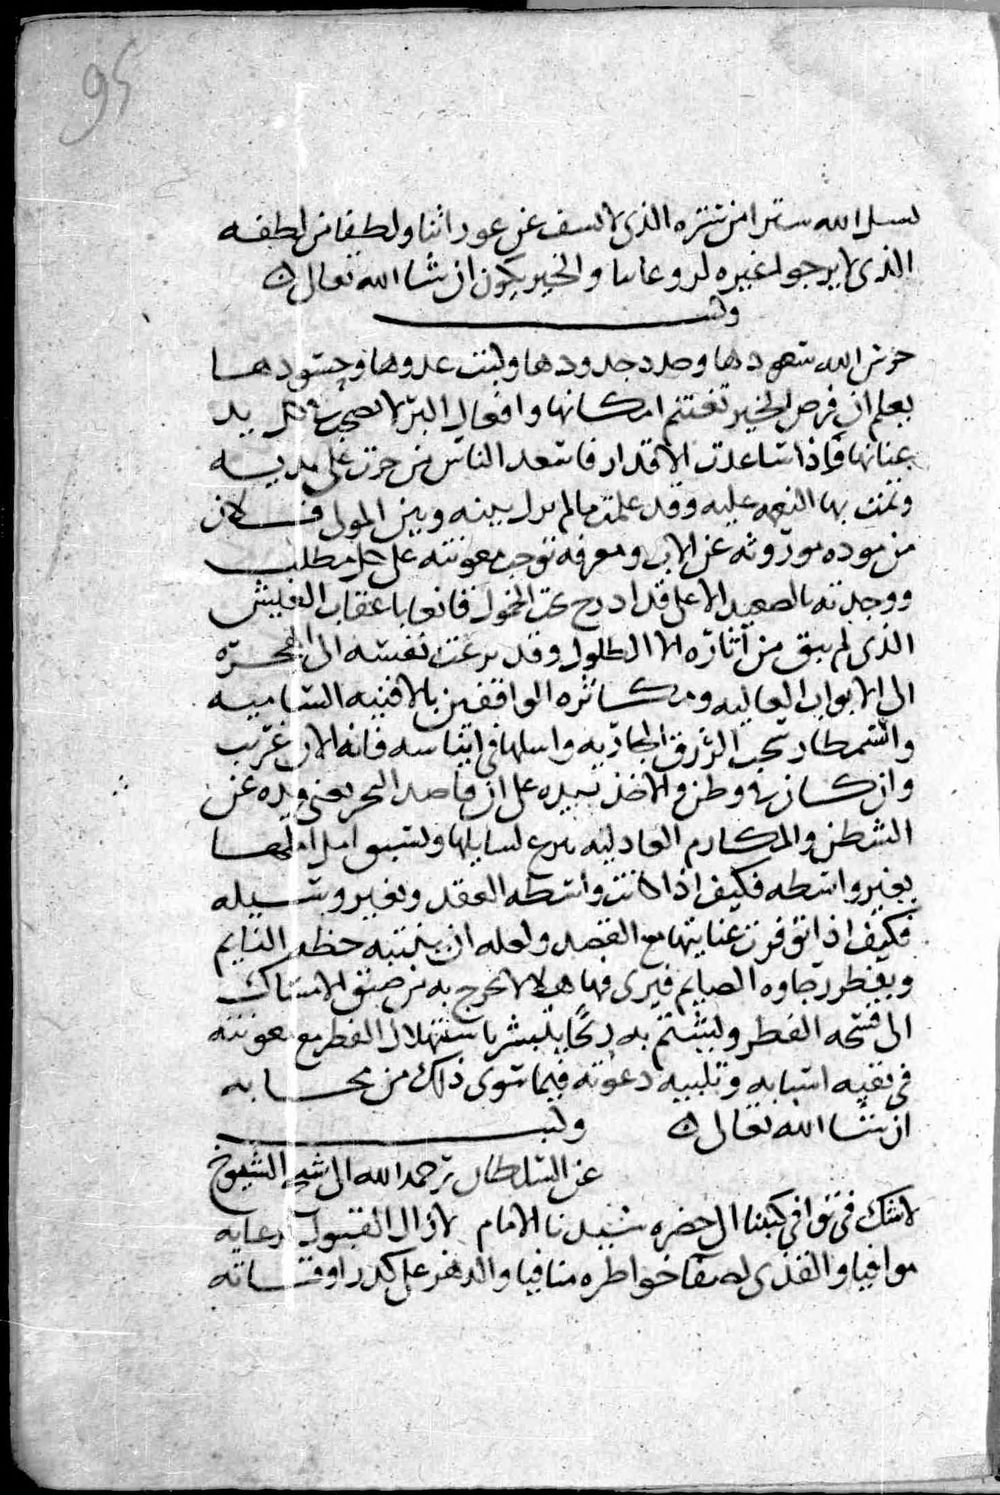 95
نسل الله سترا من ستره الذي لا يسف عن عوراتنا ولطفا من لطفه
الذي لا يرجوا غيره لروعاتنا والخير يكون ان شا الله تعالى
وكتب
حرس الله سعودها وصدد جدودها وكبت عدوها وحسودها
يعلم ان فرص الخير تغتنم امكانها وافعال البر لا تصحب كل يد
عنانها فاذا ساعدت الاقدار فاسعد الناس من جرت على يديه
وتمت بها النعمه عليه وقد علمت ما لم يزل بينه وبين المولى فلان
من موده موروثه عن الاب ومعرفه توجب معونته على كل مطلب
ووجدته بالصعيد الاعلى قد ادرج تحت الخمول قانعا باعقاب العيش
الذي لم يبق من آثاره الا الطلول وقد نزعت نفسه الى الهجره
الى الابواب العاليه ومكاثره الواقفين بالافنيه الساميه
واستمطار سحب الرزق الجاريه واسلها في ايناسه فانه الان غريب
وان كان في وطن والاخذ بيده على ان قاصد البحر يغني ورده عن
الشطن والمكارم العادليه تسرع لسايلها وتسبق امل املها
بغير واسطه فكيف اذا كانت واسطه العقد وبغير وسيله
فكيف اذا توفرت عنايتها مع القصد ولعله ان ينتبه حظه النايم
ويفطر رجاوه الصايم فيرى فيها هلالا يخرج به من ضيق الامساك
الى فسحه الفطر وليشتم به ريحا يبشر باستهلال القطر مع معونته
في اسبابه وتلبيه دعوته فيما سوى ذلك من محابه
ان شا الله تعالى وكتب
عن السلطان رحمه الله الى شيخ الشيوخ
لا شك في توافي كتبنا الى حضره سيدنا الامام لا زال القبول لدعايه
موافيا والقذى لصفا خواطره منافيا والدهر على كدر اوقاته